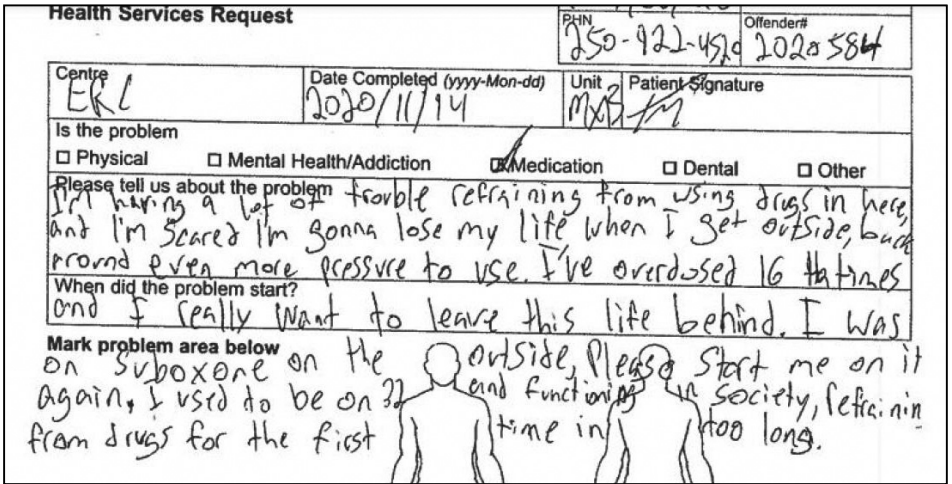 Health Services Request
PHN
Offender#
250-922-4520
2020584
Centre
Date Completed (yyyy-Mon-dd)
Unit
Patient Signature
ERC
2020/11/14
Is the problem
☐ Physical ☐ Mental Health/Addiction ☒ Medication ☐ Dental ☐ Other
Please tell us about the problem
I'm having a lot of trouble refraining from using drugs in here,
and I'm scared I'm gonna lose my life, when I get outside, back
around even more pressure to use. I've overdosed 16 times
When did the problem start?
and I really want to leave this life behind. I was
Mark problem area below
on Suboxone on the outside, Please start me on it
again, I used to be on 32 and functioning in society, refrainin
from drugs for the first time in too long.